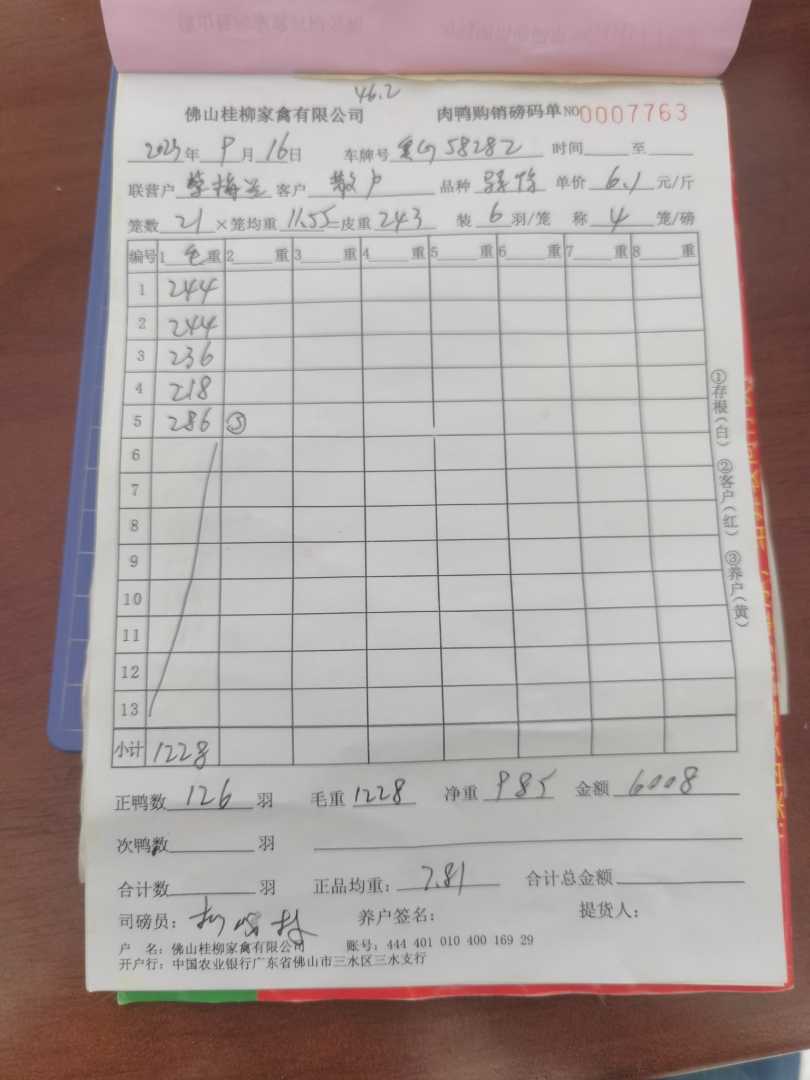 46.2
佛山桂柳家禽有限公司 肉鸭购销磅码单 NO 0007763
2025年 9月 16日 车牌号 58282 时间 至
联营户 梅兰 客户 散户 品种 单价 6.1 元/斤
笼数 21 ×笼均重 11.55 =皮重 243 装 6 羽/笼 称 4 笼/磅
编号 1 毛重 2 重 3 重 4 重 5 重 6 重 7 重 8 重
1 244
2 244
3 236
4 218
5 286 ⑤
6
7
8
9
10
11
12
13
小计 1228
①存根(白) ②客户(红) ③养户(黄)
正鸭数 126 羽 毛重 1228 净重 985 金额 6008
次鸭数 羽
合计数 羽 正品均重: 7.81 合计总金额
司磅员: 养户签名: 提货人:
户 名: 佛山桂柳家禽有限公司 账号: 444 401 010 400 169 29
开户行: 中国农业银行广东省佛山市三水区三水支行